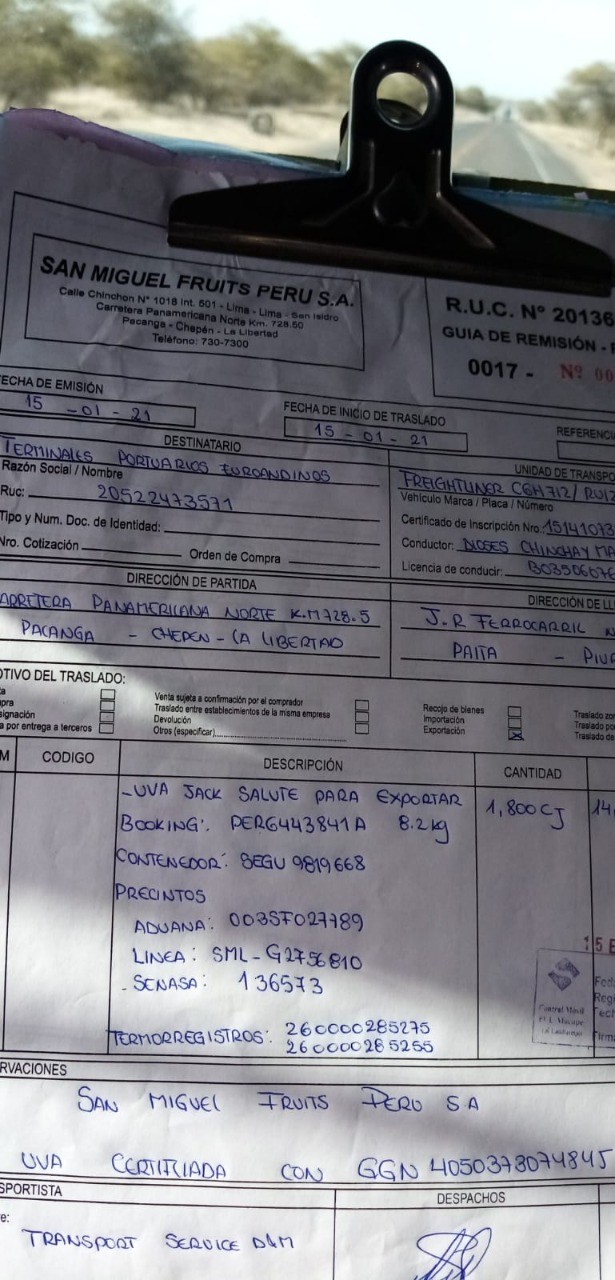 SAN MIGUEL FRUITS PERU S.A.
Calle Chinchon Nº 1018 Int. 501 - Lima - Lima - San Isidro
Carretera Panamericana Norte Km. 728.50
Pacanga - Chepén - La Libertad
Teléfono: 730-7300
R.U.C. Nº 20136
GUIA DE REMISIÓN -
0017 - Nº 00
FECHA DE EMISIÓN
15 - 01 - 21
FECHA DE INICIO DE TRASLADO
15 - 01 - 21
REFERENCI
DESTINATARIO
TERMINALES PORTUARIOS EUROANDINOS
Razón Social / Nombre
Ruc: 20522473571
Tipo y Num. Doc. de Identidad:
Nro. Cotización Orden de Compra
UNIDAD DE TRANSPO
FREIGHTLINER C6H712/ RUIZ
Vehículo Marca / Placa / Número
Certificado de Inscripción Nro. 15141073
Conductor: DIOSES CHINCHAY MA
Licencia de conducir: B0350607
DIRECCIÓN DE PARTIDA
ARRETERA PANAMERICANA NORTE K.M728.5
PACANGA - CHEPEN - LA LIBERTAD
DIRECCIÓN DE LL
J.R FERROCARRIL N
PAITA - PIU
OTIVO DEL TRASLADO:
Venta sujeta a confirmación por el comprador
Traslado entre establecimientos de la misma empresa
Devolución
Otros (especificar)
a por entrega a terceros
Recojo de bienes
Importación
Exportación
Traslado zon
Traslado po
Traslado de
M CODIGO DESCRIPCIÓN CANTIDAD
-UVA JACK SALUTE PARA EXPORTAR 1,800 CJ 14,
BOOKING: PER6443841A 8.2 kg
CONTENEDOR: SEGU 9819668
PRECINTOS
ADUANA: 003SF027789
LINEA: SML-G2756810
- SENASA: 136573
TERMORREGISTROS: 260000285275
260000285255
15 E
Control Móvil
RVACIONES
SAN MIGUEL FRUITS PERU S.A
UVA CERTIFICIADA CON GGN 4050373074845
SPORTISTA
DESPACHOS
e:
TRANSPORT SERVICE D&M